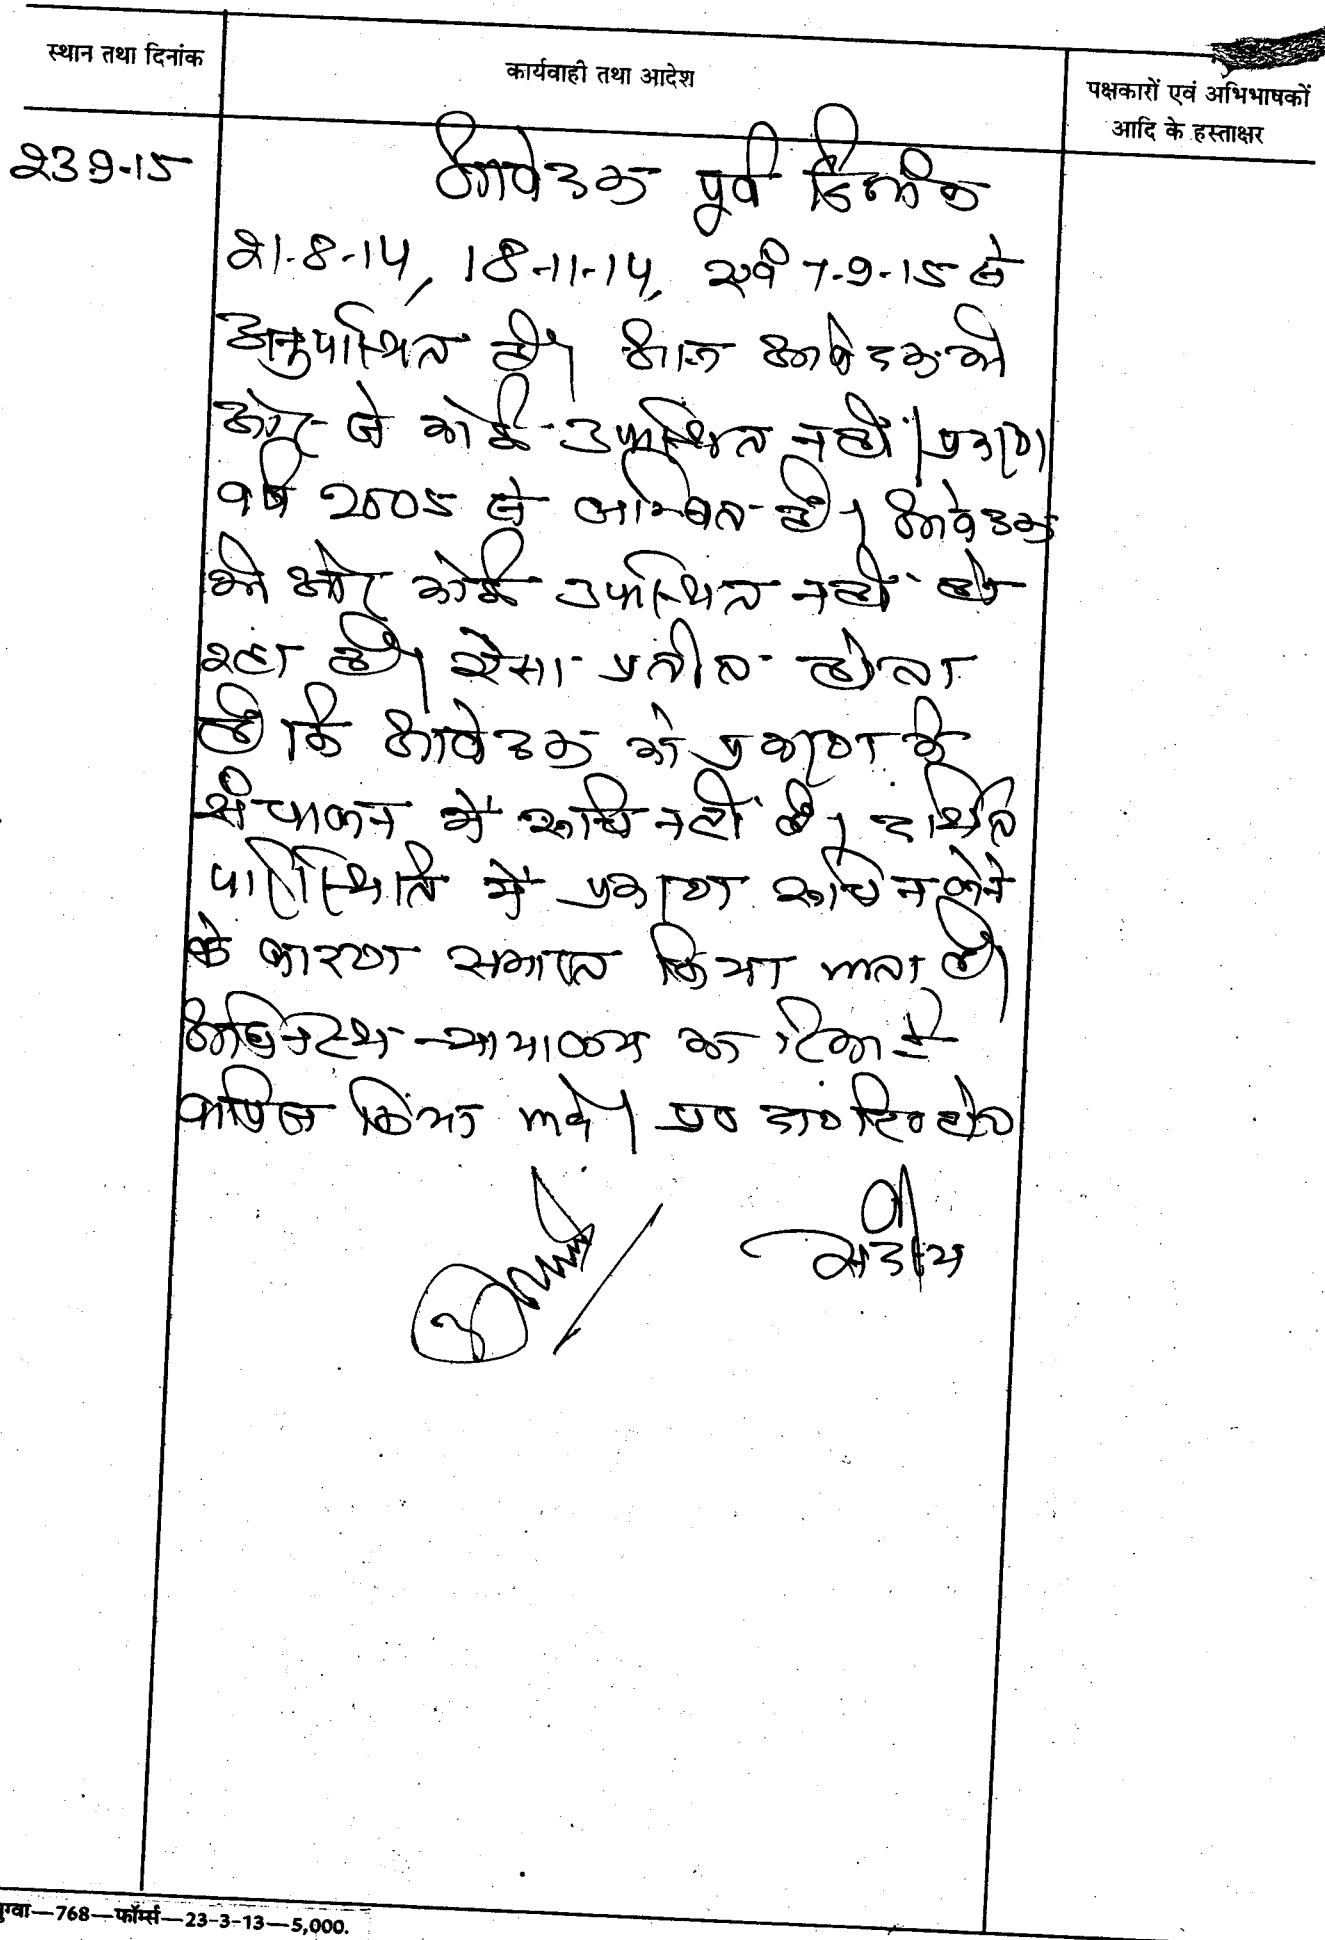 स्थान तथा दिनांक
कार्यवाही तथा आदेश
पक्षकारों एवं अभिभाषकों
आदि के हस्ताक्षर
23.9.15
आवेदक पूर्व दिनांक
21.8.14, 18.11.14, एवं 7.9.15 से
अनुपस्थित है। आज आवेदक की
ओर से कोई उपस्थित नहीं। प्रकरण
वर्ष 2005 से लम्बित है। आवेदक
की ओर कोई उपस्थित नहीं हो
रहा है। ऐसा प्रतीत होता
है कि आवेदक को प्रकरण के
संचालन में रूचि नहीं है।
परिस्थिति में प्रकरण रूचि न लेने
के कारण समाप्त किया जाता है।
अधिनस्थ न्यायालय का रिकार्ड
वापिस किया जावे। प्र० दा० रि० होवे
सदस्य
768—फॉर्म्स—23-3-13—5,000.